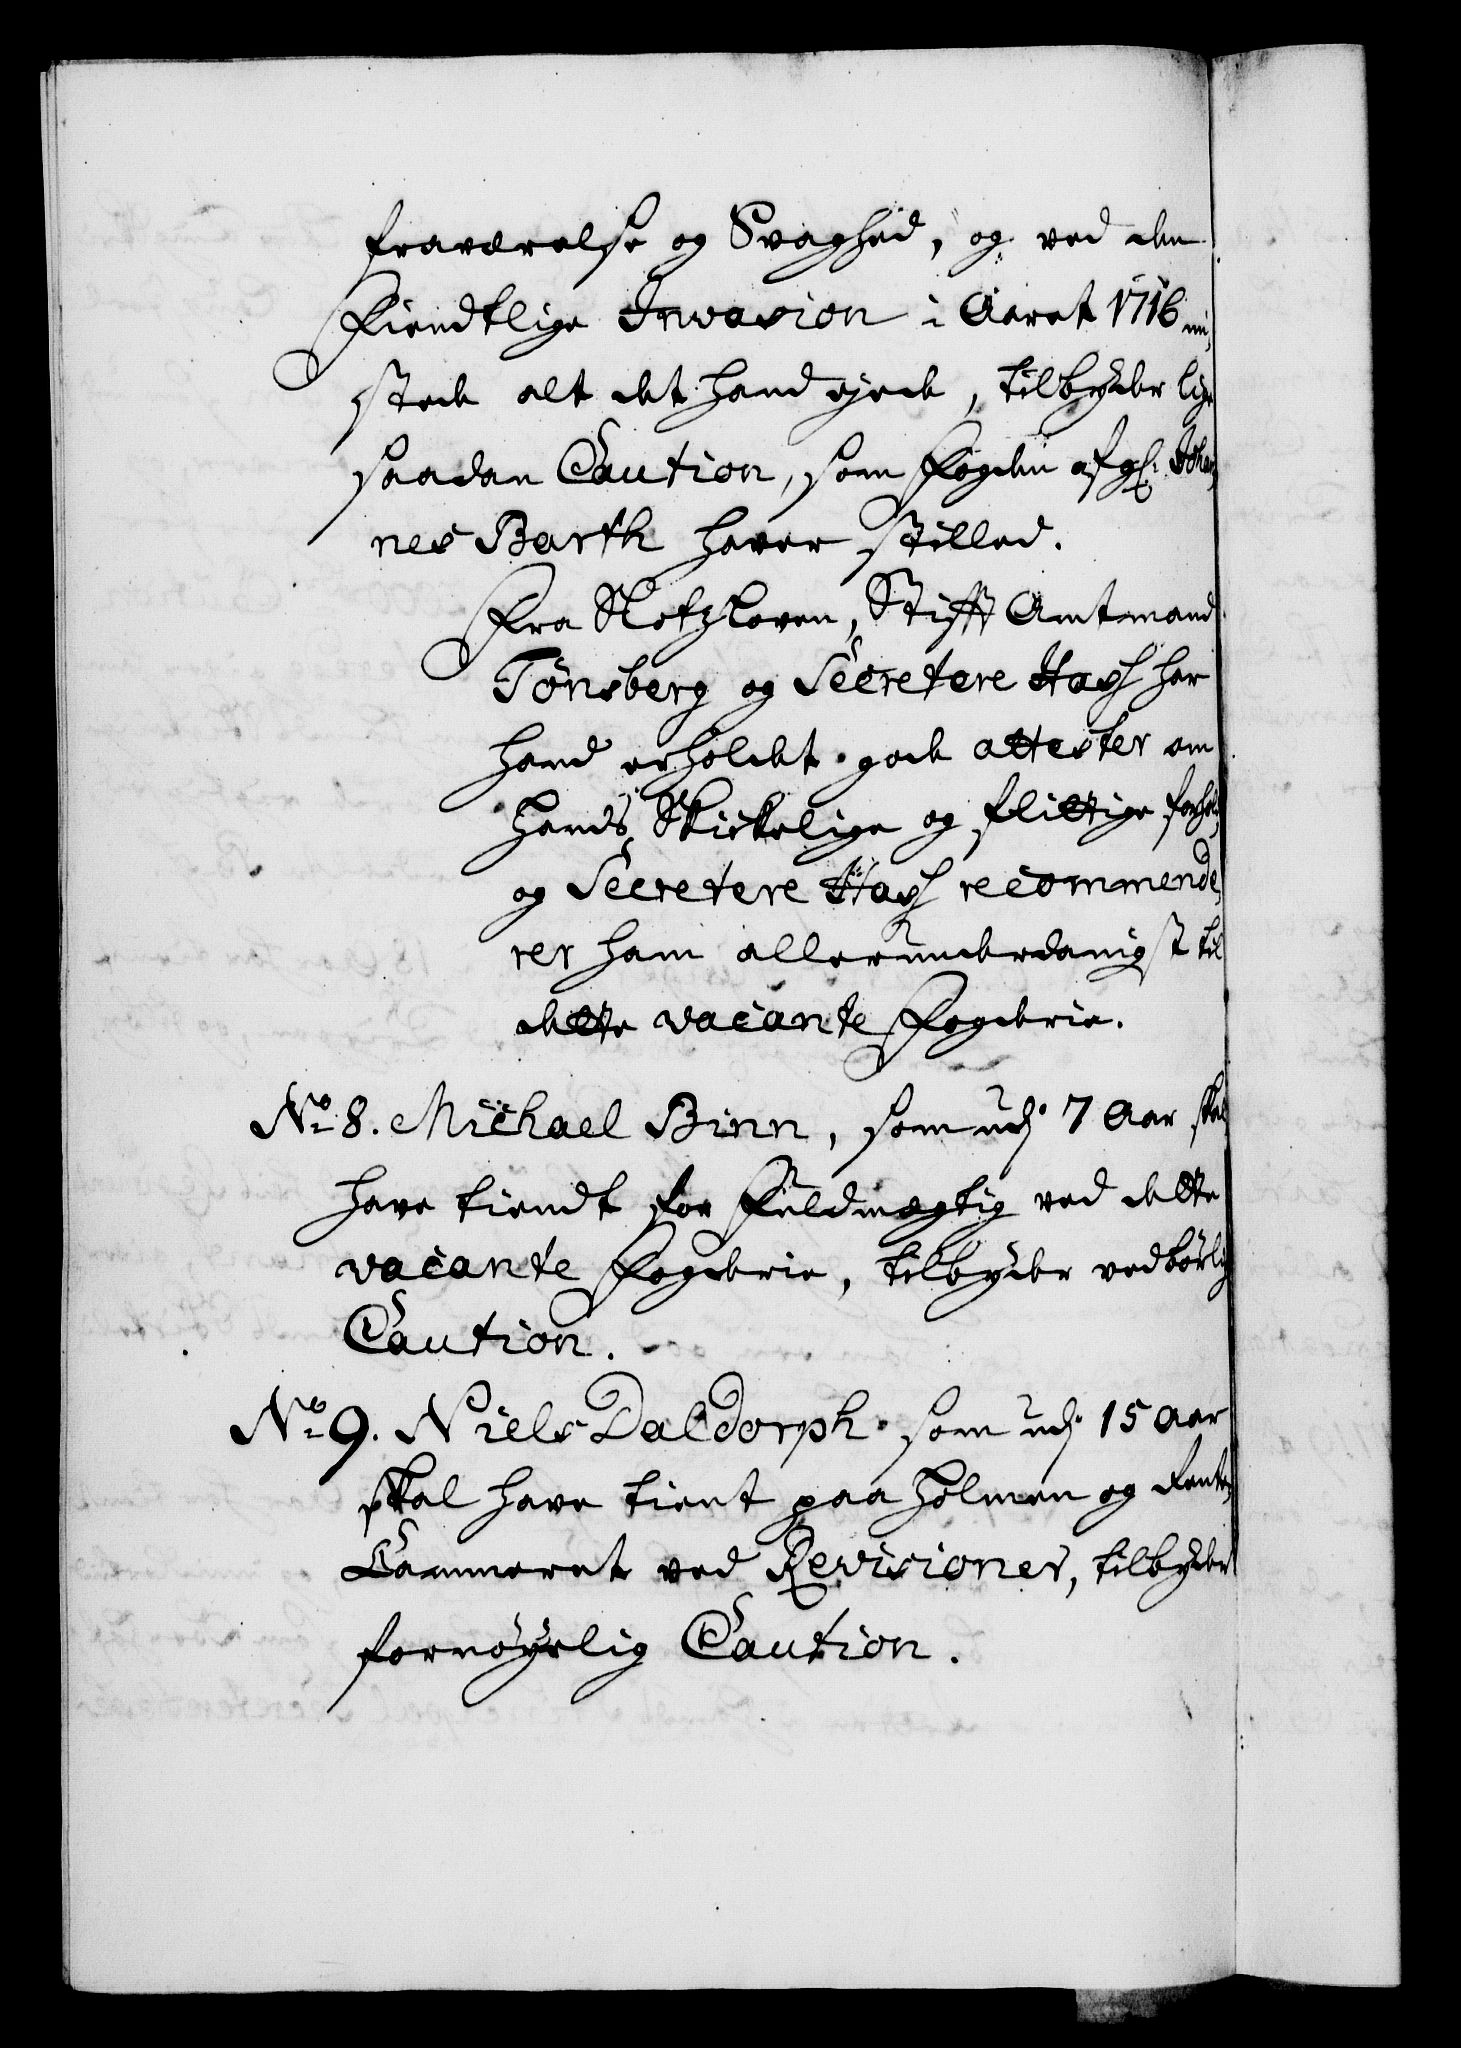 fraværelse og Svaghed, og ved den
Fiendtlige Invasion i Aaret 1716 mi¬
stede alt det hand ejede, tilbyder lige
saadan Caution, som Fogden afg: Johan¬
nes Barth haver stilled.
Fra Slotzloven, Stifft Amtmand
Tönsberg og Secretere Hass har
hand erholdet gode attester om
hands Skickelige og flittige forhold,
og Secretere Hass recommende¬
rer ham allerunderdanigst til
dette vacante Fogderie.
No 8. Michael Binn, som udj 7 Aar skal
have tiendt for Fuldmægtig ved dette
vacante Fogderie, tilbyder vedbörlig
Caution.
No 9. Niels Daldorph som udj 15 Aar
skal have tient paa Holmen og Rente
Cammeret ved Revisioner, tilbyder
fornöyelig Caution.